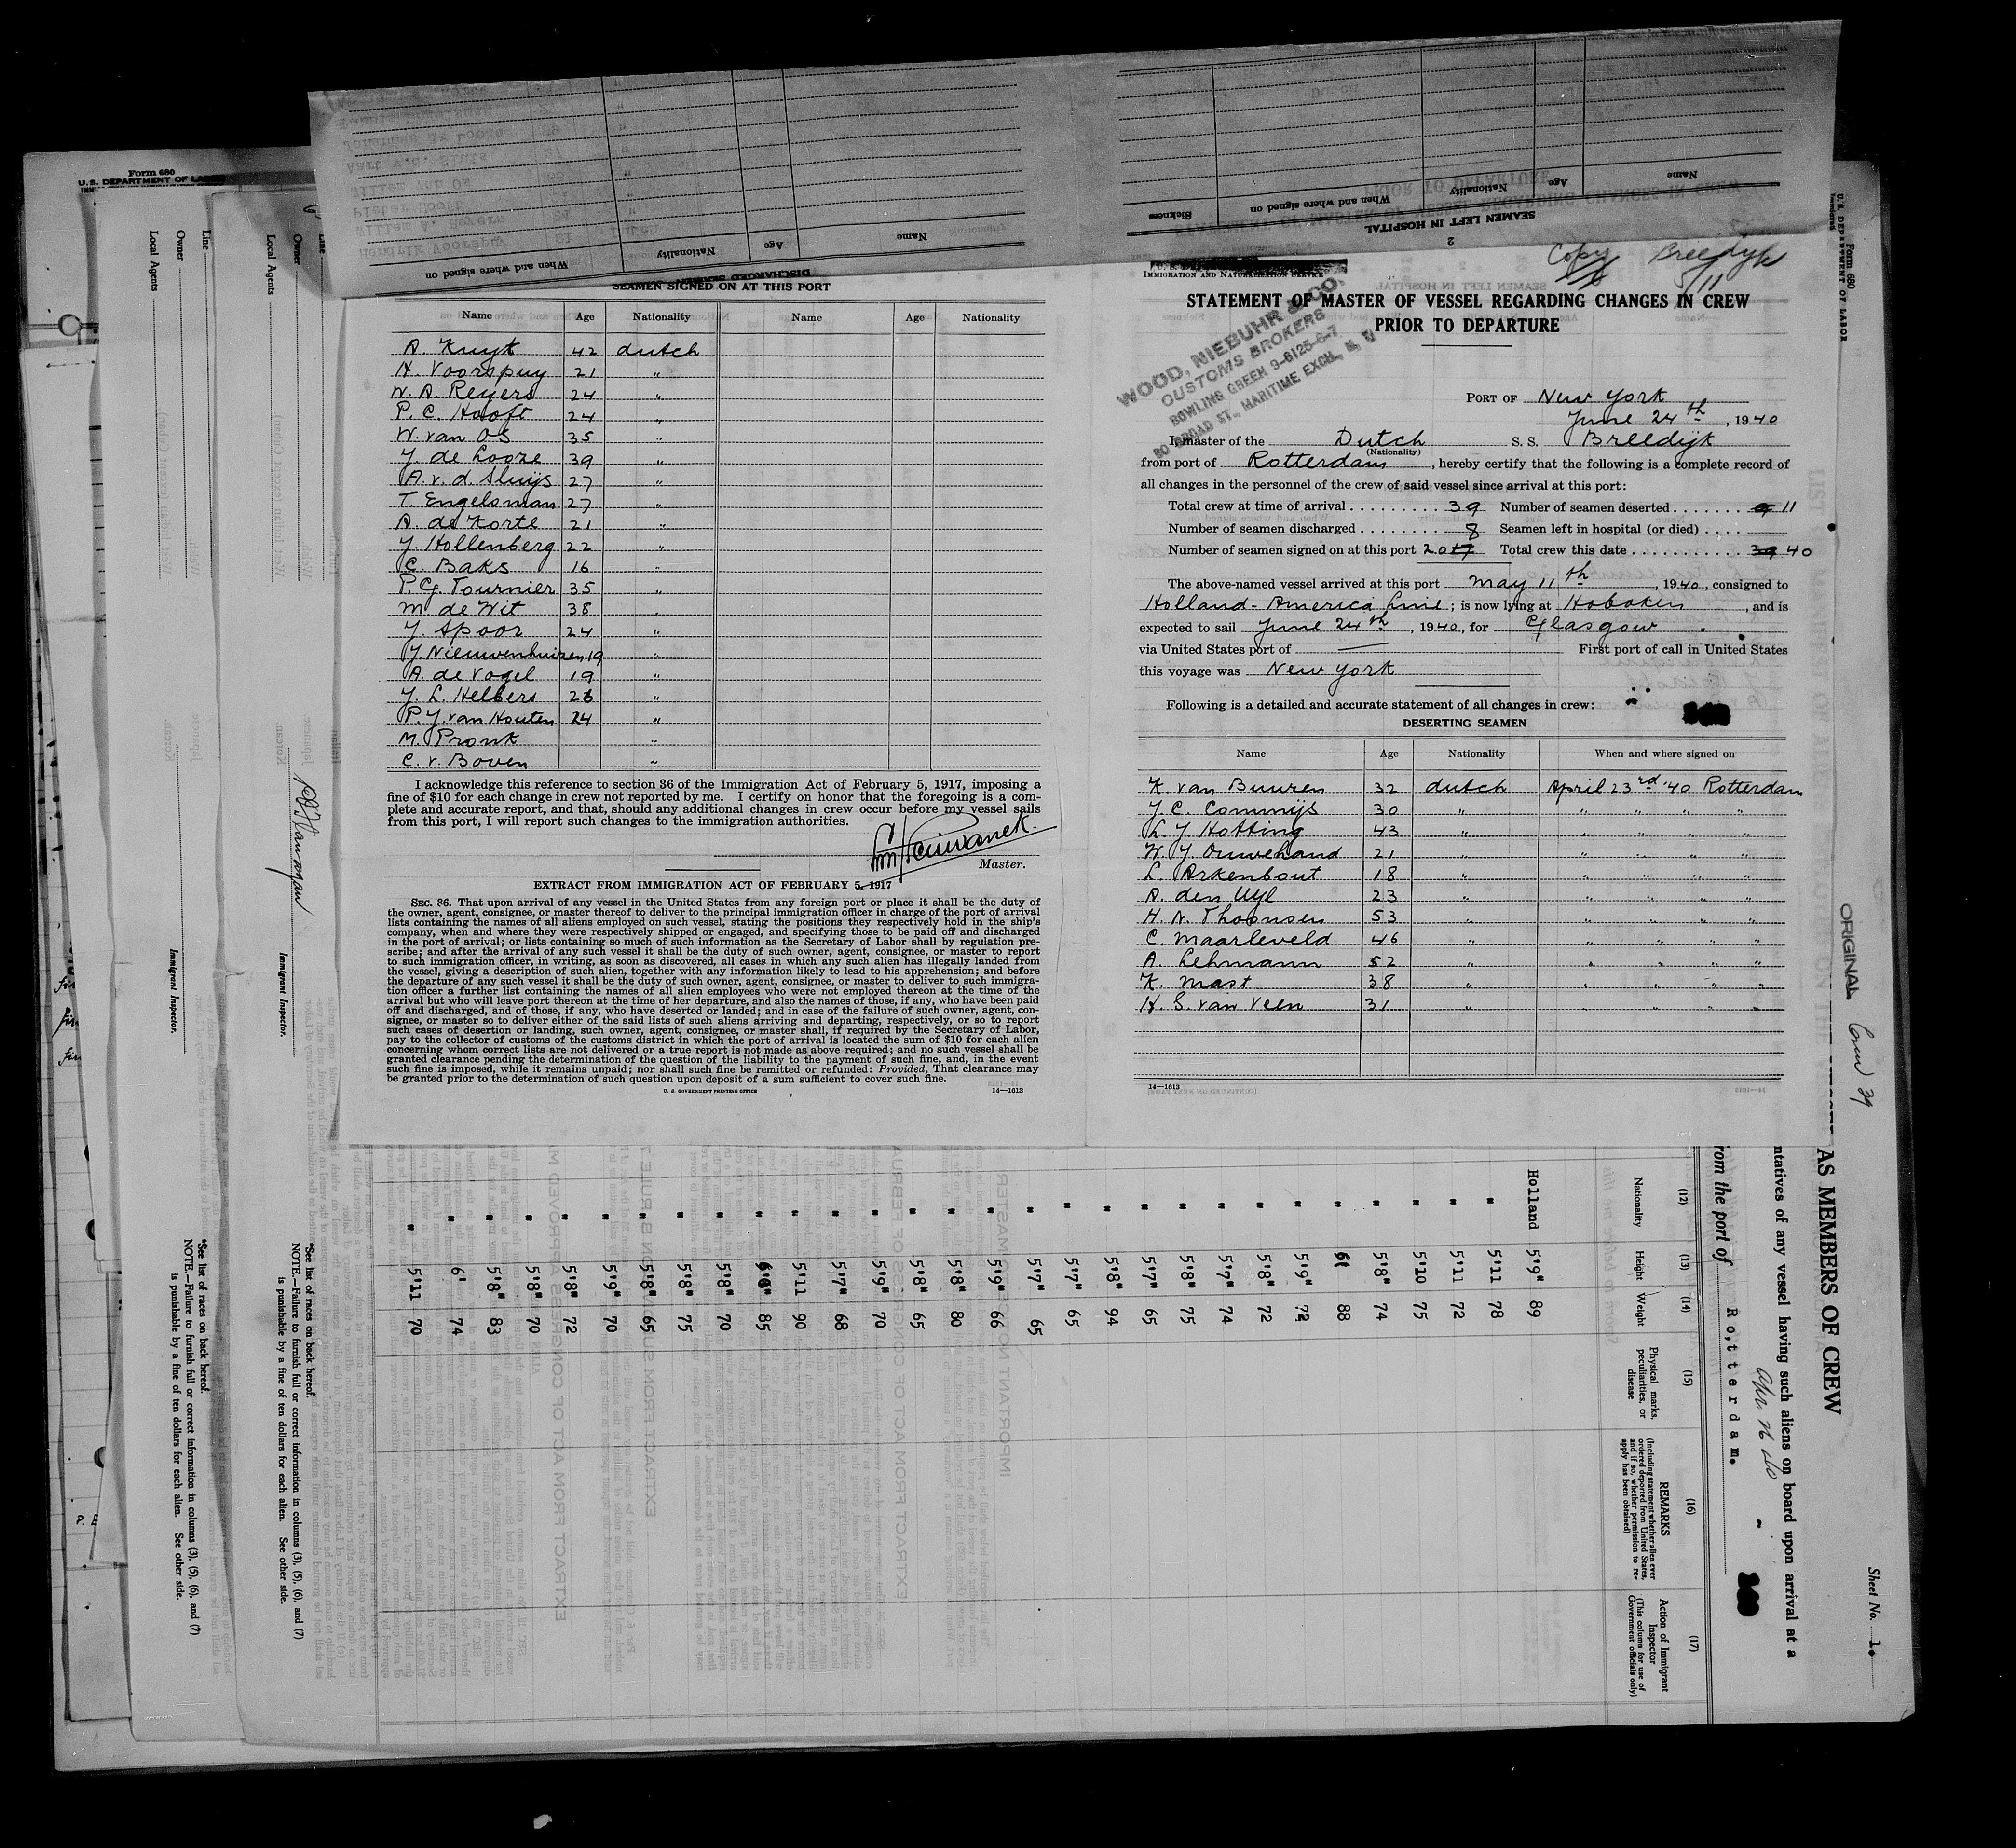 Form 680
U. S. DEPARTMENT OF LABOR
Line
Owner
Local Agents
Immigrant Inspector.
*See list of races on back hereof.
NOTE.—Failure to furnish full or correct information in columns (3), (5), (6), and (7)
is punishable by a fine of ten dollars for each alien. See other side.
Owner
Local Agents
Immigrant Inspector.
*See list of races on back hereof.
NOTE.—Failure to furnish full or correct information in columns (3), (5), (6), and (7)
is punishable by a fine of ten dollars for each alien. See other side.
DISCHARGED SEAMEN
Name Age Nationality When and where signed on
2
SEAMEN LEFT IN HOSPITAL
Name Age Nationality When and where signed on Sickness
SEAMEN SIGNED ON AT THIS PORT
Name Age Nationality Name Age Nationality
A. Kuyt 42 dutch
H. Voorspuy 21 "
W. A. Reyers 24 "
P. C. Hooft 24 "
W. van Os 35 "
J. de Looze 39 "
A. v. d. Sluijs 27 "
T. Engelsman 27 "
A. de Korte 21 "
J. Hollenberg 22 "
C. Baks 16 "
P. G. Tournier 35 "
M. de Wit 38 "
J. Spoor 24 "
J. Nieuwenhuizen 19 "
A. de Vogel 19 "
J. L. Helbers 26 "
P. J. van Houten 24 "
M. Pronk "
C. v. Boven "
I acknowledge this reference to section 36 of the Immigration Act of February 5, 1917, imposing a
fine of $10 for each change in crew not reported by me. I certify on honor that the foregoing is a com-
plete and accurate report, and that, should any additional changes in crew occur before my vessel sails
from this port, I will report such changes to the immigration authorities.
Master.
EXTRACT FROM IMMIGRATION ACT OF FEBRUARY 5, 1917
SEC. 36. That upon arrival of any vessel in the United States from any foreign port or place it shall be the duty of
the owner, agent, consignee, or master thereof to deliver to the principal immigration officer in charge of the port of arrival
lists containing the names of all aliens employed on such vessel, stating the positions they respectively hold in the ship's
company, when and where they were respectively shipped or engaged, and specifying those to be paid off and discharged
in the port of arrival; or lists containing so much of such information as the Secretary of Labor shall by regulation pre-
scribe; and after the arrival of any such vessel it shall be the duty of such owner, agent, consignee, or master to report
to such immigration officer, in writing, as soon as discovered, all cases in which any such alien has illegally landed from
the vessel, giving a description of such alien, together with any information likely to lead to his apprehension; and before
the departure of any such vessel it shall be the duty of such owner, agent, consignee, or master to deliver to such immigra-
tion officer a further list containing the names of all alien employees who were not employed thereon at the time of the
arrival but who will leave port thereon at the time of her departure, and also the names of those, if any, who have been paid
off and discharged, and of those, if any, who have deserted or landed; and in case of the failure of such owner, agent, con-
signee, or master so to deliver either of the said lists of such aliens arriving and departing, respectively, or so to report
such cases of desertion or landing, such owner, agent, consignee, or master shall, if required by the Secretary of Labor,
pay to the collector of customs of the customs district in which the port of arrival is located the sum of $10 for each alien
concerning whom correct lists are not delivered or a true report is not made as above required; and no such vessel shall be
granted clearance pending the determination of the question of the liability to the payment of such fine, and, in the event
such fine is imposed, while it remains unpaid; nor shall such fine be remitted or refunded: Provided, That clearance may
be granted prior to the determination of such question upon deposit of a sum sufficient to cover such fine.
U. S. GOVERNMENT PRINTING OFFICE 14—1613
Copy Breedijk
5/11
IMMIGRATION AND NATURALIZATION SERVICE
STATEMENT OF MASTER OF VESSEL REGARDING CHANGES IN CREW
PRIOR TO DEPARTURE
WOOD, NIEBUHR & CO.
CUSTOMS BROKERS
BOWLING GREEN 9-6125-6-7
80 BROAD ST., MARITIME EXCH., N. Y.
PORT OF New York
June 24th, 1940
I, master of the Dutch S. S. Breedijk
(Nationality)
from port of Rotterdam, hereby certify that the following is a complete record of
all changes in the personnel of the crew of said vessel since arrival at this port:
Total crew at time of arrival 39 Number of seamen deserted 9 11
Number of seamen discharged 8 Seamen left in hospital (or died)
Number of seamen signed on at this port 20 17 Total crew this date 39 40
The above-named vessel arrived at this port May 11th, 1940, consigned to
Holland-America Line; is now lying at Hoboken, and is
expected to sail June 24th, 1940, for Glasgow.
via United States port of — First port of call in United States
this voyage was New York
Following is a detailed and accurate statement of all changes in crew:
DESERTING SEAMEN
Name Age Nationality When and where signed on
K. van Buuren 32 dutch April 23rd '40 Rotterdam
J. C. Commijs 30 " " " " "
L. J. Hotting 43 " " " " "
W. J. Ouwehand 21 " " " " "
L. Arkenbout 18 " " " " "
A. den Uyl 23 " " " " "
H. N. Thoonsen 53 " " " " "
C. Maarleveld 46 " " " " "
A. Lehmann 52 " " " " "
K. Mast 38 " " " " "
H. S. van Veen 31 " " " " "
14—1613
Form 680
U. S. DEPARTMENT OF LABOR
ORIGINAL
Sheet No. 1.
AS MEMBERS OF CREW
ntatives of any vessel having such aliens on board upon arrival at a
rom the port of Rotterdam.
(12) (13) (14) (15) (16) (17)
Nationality Height Weight Physical marks, peculiarities, or disease
REMARKS (Including statement whether alien ever ordered deported from United States, and if so, whether permission to re-apply has been obtained)
Action of Immigrant Inspector (This column for use of Government officials only)
Holland 5'9" 89
" 5'11 78
" 5'11 72
" 5'10 75
" 5'8" 74
" 6' 88
" 5'9" 72
" 5'8" 72
" 5'7" 74
" 5'8" 75
" 5'7" 65
" 5'8" 94
" 5'7" 65
" 5'7" 65
" 5'9" 66
" 5'8" 80
" 5'8" 65
" 5'9" 70
" 5'7" 68
" 5'11 90
" 85
" 5'8" 70
" 5'8" 75
" 5'8" 65
" 5'9" 70
" 5'8" 72
" 5'8" 70
" 5'8" 83
" 6' 74
" 5'11 70